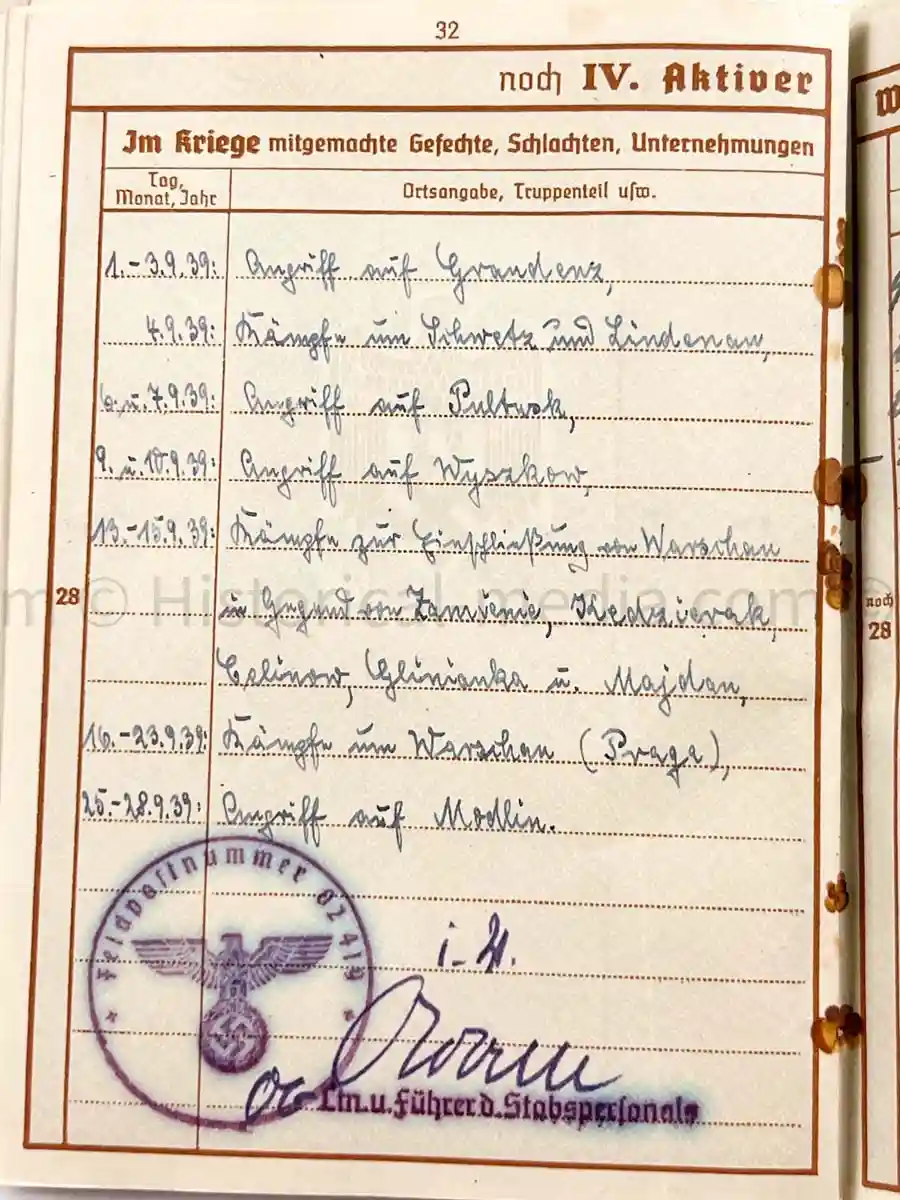 32
noch IV. Aktiver
Im Kriege mitgemachte Gefechte, Schlachten, Unternehmungen
Tag, Monat, Jahr
Ortsangabe, Truppenteil usw.
1.-3.9.39: Angriff auf Graudenz,
4.9.39: Kämpfe um Schwetz und Lindenau,
6. u. 7.9.39: Angriff auf Pultusk,
9. u. 10.9.39: Angriff auf Wyszkow,
13.-15.9.39: Kämpfe zur Einschließung von Warschau
28
in Gegend von Zamienie, Kedzierak,
Celinow, Glinianka u. Majdan,
16.-23.9.39: Kämpfe um Warschau (Praga),
25.-28.9.39: Angriff auf Modlin.
* Feldpostnummer 02419 *
Ltn. u. Führer d. Stabspersonals
© Historical-media.com
noch
28